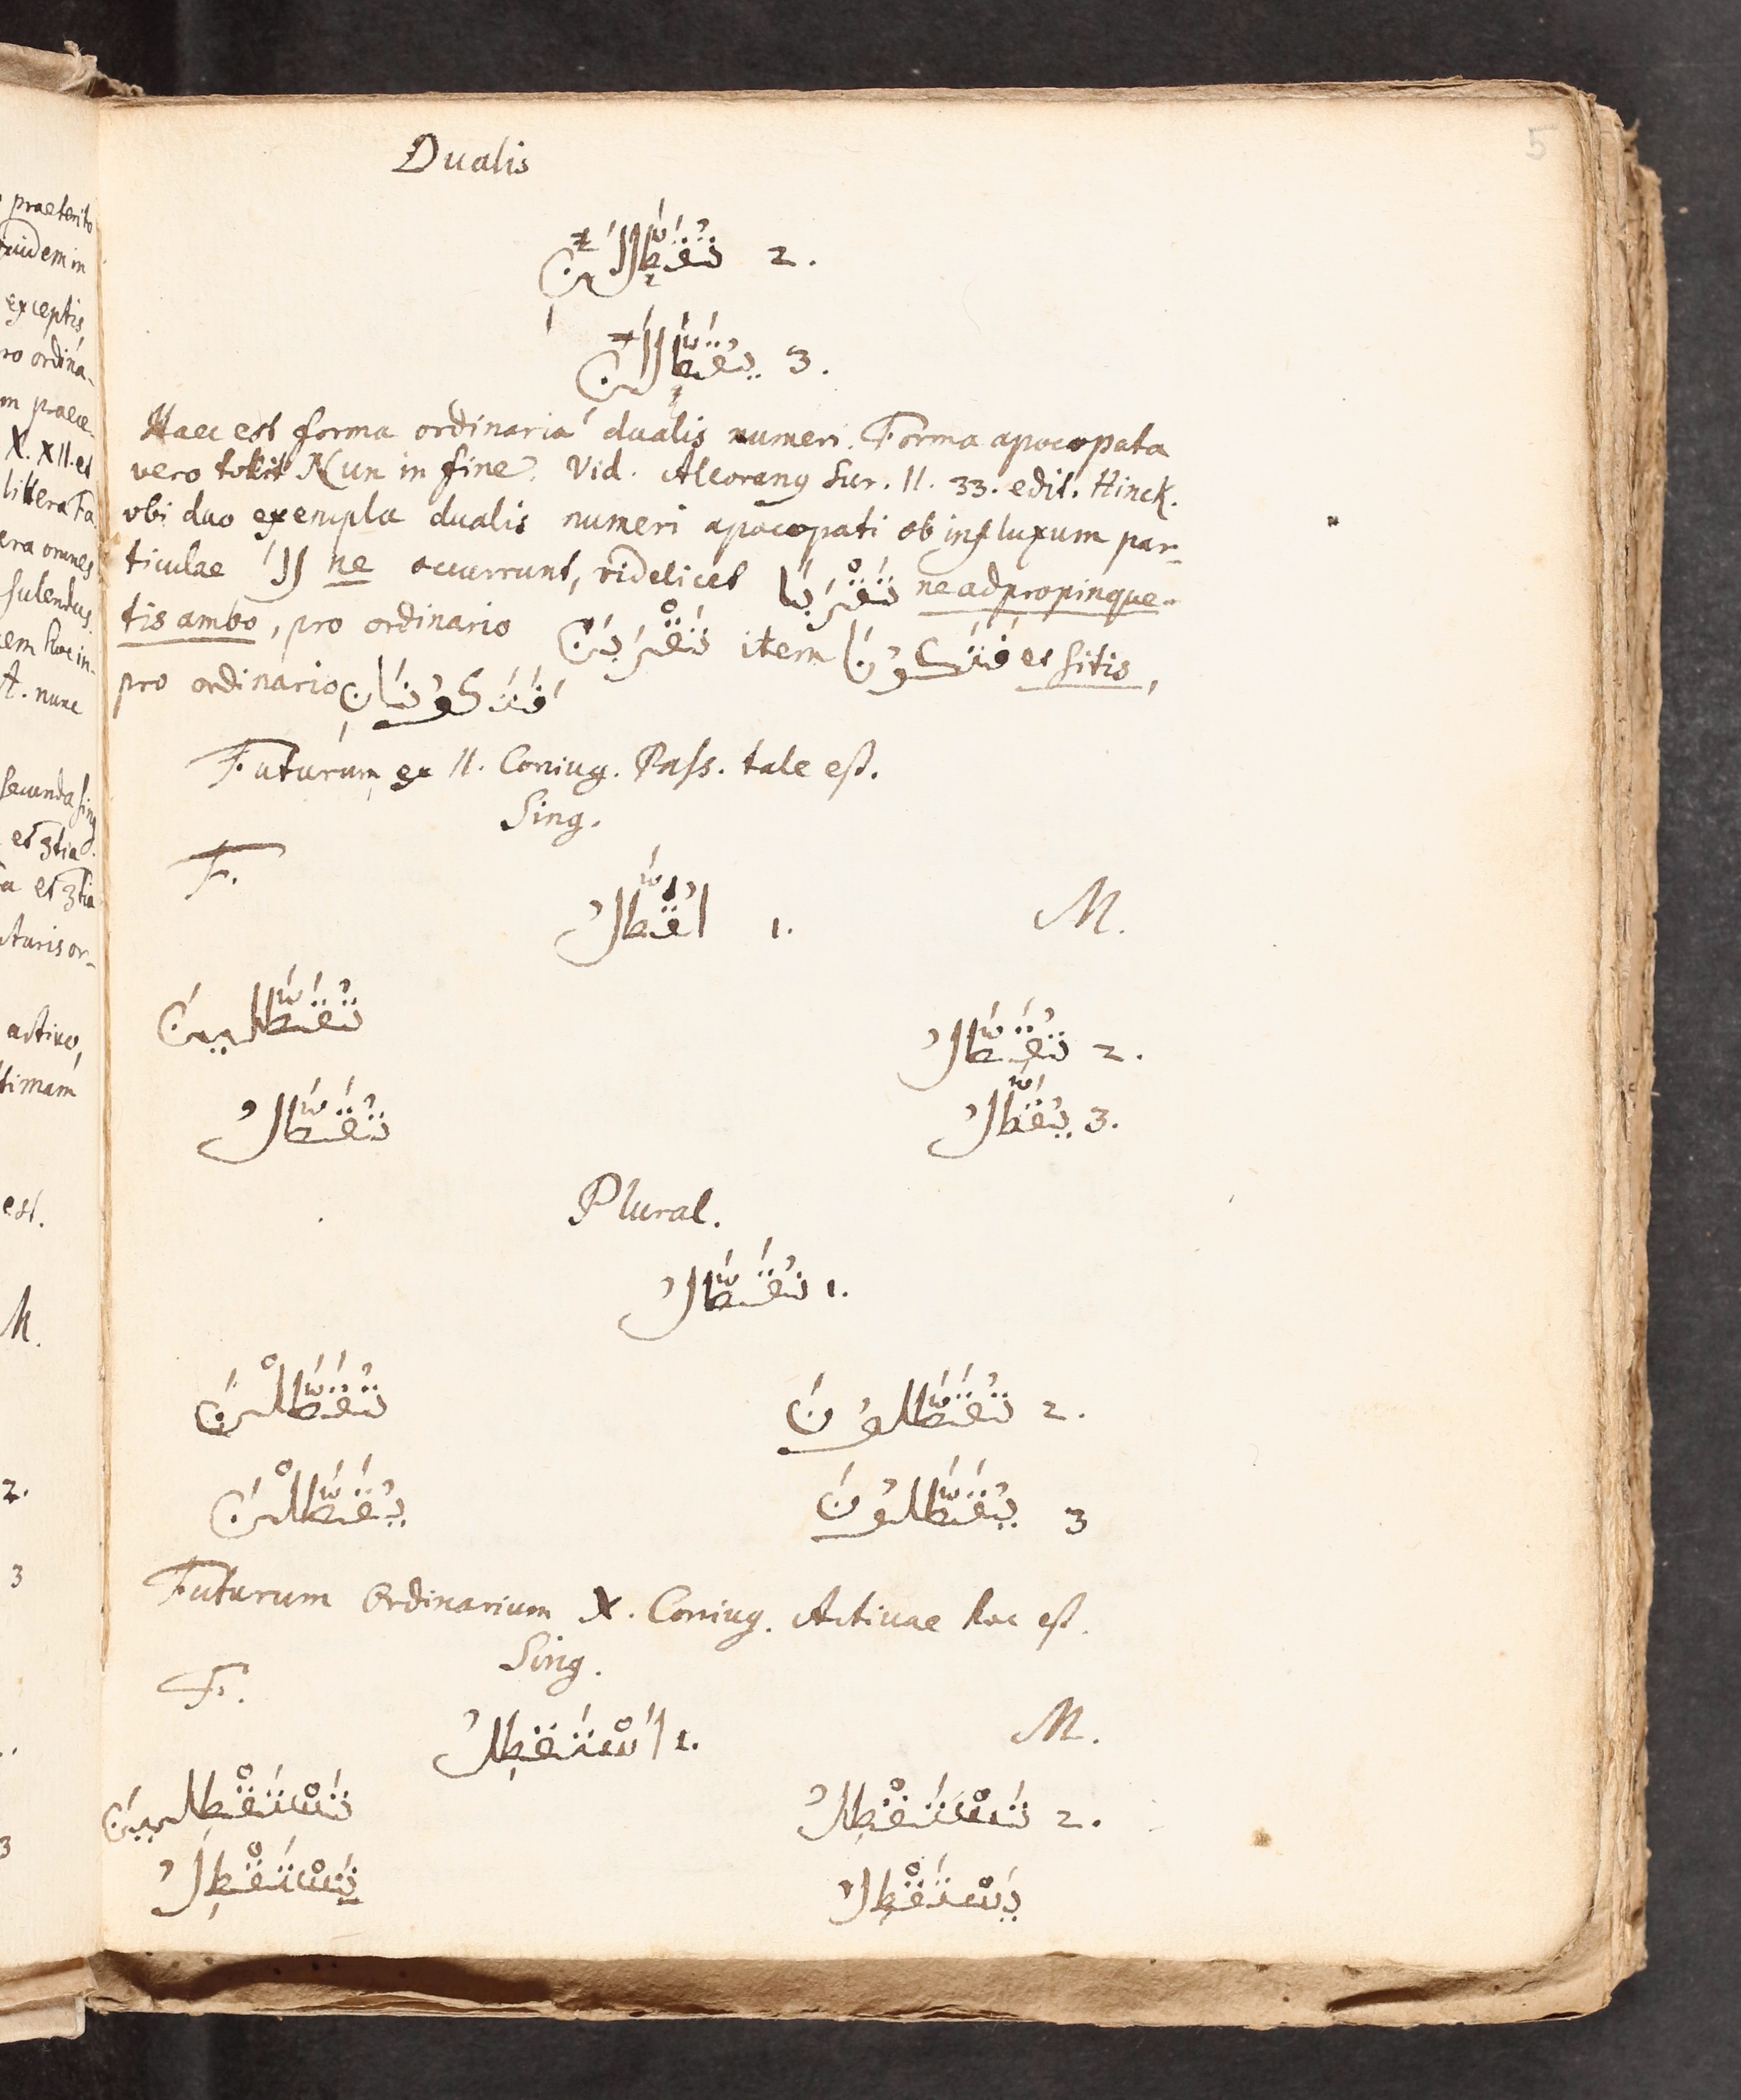 5
Dualis
2. تُقَطَّلَانِ
3. يُقَطَّلَانِ
Haec est forma ordinaria dualis numeri. Forma apocopata
vero tollit Nun in fine. Vid. Alcorang Sur. II. 33. edit. Hinck.
vbi duo exempla dualis numeri apocopati ob influxum par-
ticulae لَا ne occurrunt, videlicet تَقْرَبَا ne adpropinque-
tis ambo, pro ordinario تَقْرَبَانَ item فَتَكُونَا et sitis,
pro ordinario فَتَكُونَانِ
Futurum ex II. Coniug. Pass. tale est.
Sing.
F. M.
1. اُقَطَّلُ
2. تُقَطَّلُ تُقَطَّلِينَ
3. يُقَطَّلُ تُقَطَّلُ
Plural.
1. نُقَطَّلُ
2. تُقَطَّلُونَ تُقَطَّلْنَ
3 يُقَطَّلُونَ يُقَطَّلْنَ
Futurum Ordinarium X. Coniug. Activae hoc est.
Sing.
F. M.
1. اَسْتَقطِلُ
2. تَسْتَقْطِلُ تَسْتَقْطِلِينَ
يَسْتَقْطِلُ تَسْتَقْطِلُ
praeterito
quidem in
exceptis
ro ordina-
m praece-
X. XII. et
littera Ta
era omnes
A. nunc
secunda sing
et 3tia
a et 3tia
activo,
timam
est.
M.
2.
3
3